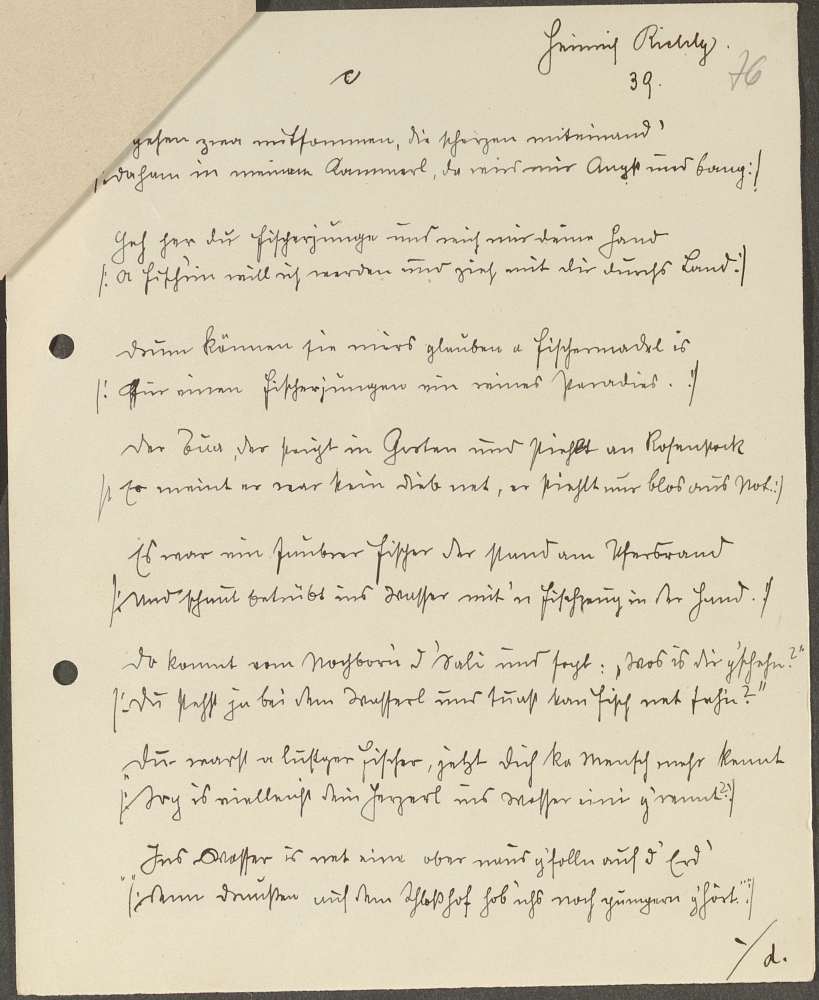 Heinrich
c
39.
76
gehen zwa mitsommen, die scherzen miteinand'
/: daham in meinem Kammerl, da wird mir Angst und bang :/
Geh her du Fischerjunge und reich mir deine Hand
/: A Fisch'rin will ich werden und zieh mit dir durchs Land :/
Drum können sie mirs glauben a Fischermadel is
/: Für einen Fischerjungen ein reines Paradies. :/
Der Bua, der steigt in Gorten und stiehlt an Rosenstock
/: Er meint er war kein Dieb net, er stiehlt nur blos aus Not :/
Es war ein saubrer Fischer der stand am Ufersrand
/: Und schaut betrübt ins Wasser mit'n Fischzeug in der Hand. :/
Do kommt vom Nochborn d'Sali und sogt: „Wos is dir g'schehn?"
/: Du stehst ja bei dem Wasserl und tuast kan Fisch net fah'n?"
Du warst a lustger Fischer, jetzt dich ka Mensch mehr kennt
/: Sog is vielleicht dein Herzerl ins Wosser eini g'rennt? :/
Ins Wosser is net eine ober naus g'folln auf d'Erd'
/: Denn draußen auf dem Schloßhof hob ichs noch pumpern g'hört." :/
/d.